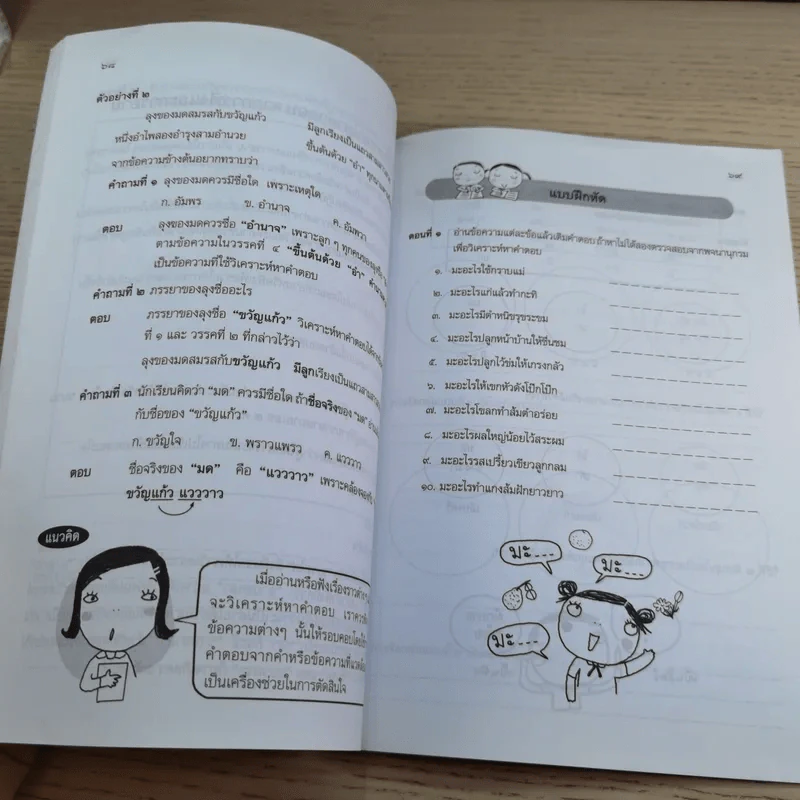 ๖๘
ตัวอย่างที่ ๒
ลุงของมดสมรสกับขวัญแก้ว มีลูกเรียงเป็นแถว
หนึ่งอำไพสองอำรุงสามอำนวย ขึ้นต้นด้วย "อำ" ทุก
จากข้อความข้างต้นอยากทราบว่า
คำถามที่ ๑ ลุงของมดควรมีชื่อใด เพราะเหตุใด
ก. อัมพร ข. อำนาจ ค. อัมพวา
ตอบ ลุงของมดควรชื่อ "อำนาจ" เพราะลูก ๆ ทุกคนของลุง
ตามข้อความในวรรคที่ ๔ "ขึ้นต้นด้วย "อำ"
เป็นข้อความที่ใช้วิเคราะห์หาคำตอบ
คำถามที่ ๒ ภรรยาของลุงชื่ออะไร
ตอบ ภรรยาของลุงชื่อ "ขวัญแก้ว" วิเคราะห์หาคำตอบได้
ที่ ๑ และ วรรคที่ ๒ ที่กล่าวไว้ว่า
ลุงของมดสมรสกับขวัญแก้ว มีลูกเรียงเป็นแถว
คำถามที่ ๓ นักเรียนคิดว่า "มด" ควรมีชื่อใด ถ้าชื่อจริงของ "มด"
กับชื่อของ "ขวัญแก้ว"
ก. ขวัญใจ ข. พราวแพรว ค. แวววาว
ตอบ ชื่อจริงของ "มด" คือ "แวววาว" เพราะคล้องจองกับ
ขวัญแก้ว แวววาว
แนวคิด
เมื่ออ่านหรือฟังเรื่องราวต่างๆ
จะวิเคราะห์หาคำตอบ เราควร
ข้อความต่างๆ นั้นให้รอบคอบโดย
คำตอบจากคำหรือข้อความที่
เป็นเครื่องช่วยในการตัดสินใจ
๖๙
แบบฝึกหัด
ตอนที่ ๑ อ่านข้อความแต่ละข้อแล้วเติมคำตอบ ถ้าหาไม่ได้ลองตรวจสอบจากพจนานุกรม
เพื่อวิเคราะห์หาคำตอบ
๑. มะอะไรใช้กราบแม่
๒. มะอะไรแก่แล้วทำกะทิ
๓. มะอะไรมีตำหนิขรุขระขม
๔. มะอะไรปลูกหน้าบ้านให้ชื่นชม
๕. มะอะไรปลูกไว้ข่มให้เกรงกลัว
๖. มะอะไรให้เขกหัวดังโป๊กโป๊ก
๗. มะอะไรโขลกทำส้มตำอร่อย
๘. มะอะไรผลใหญ่น้อยไว้สระผม
๙. มะอะไรรสเปรี้ยวเขียวลูกกลม
๑๐. มะอะไรทำแกงส้มฝักยาวยาว
มะ...
มะ...
มะ...